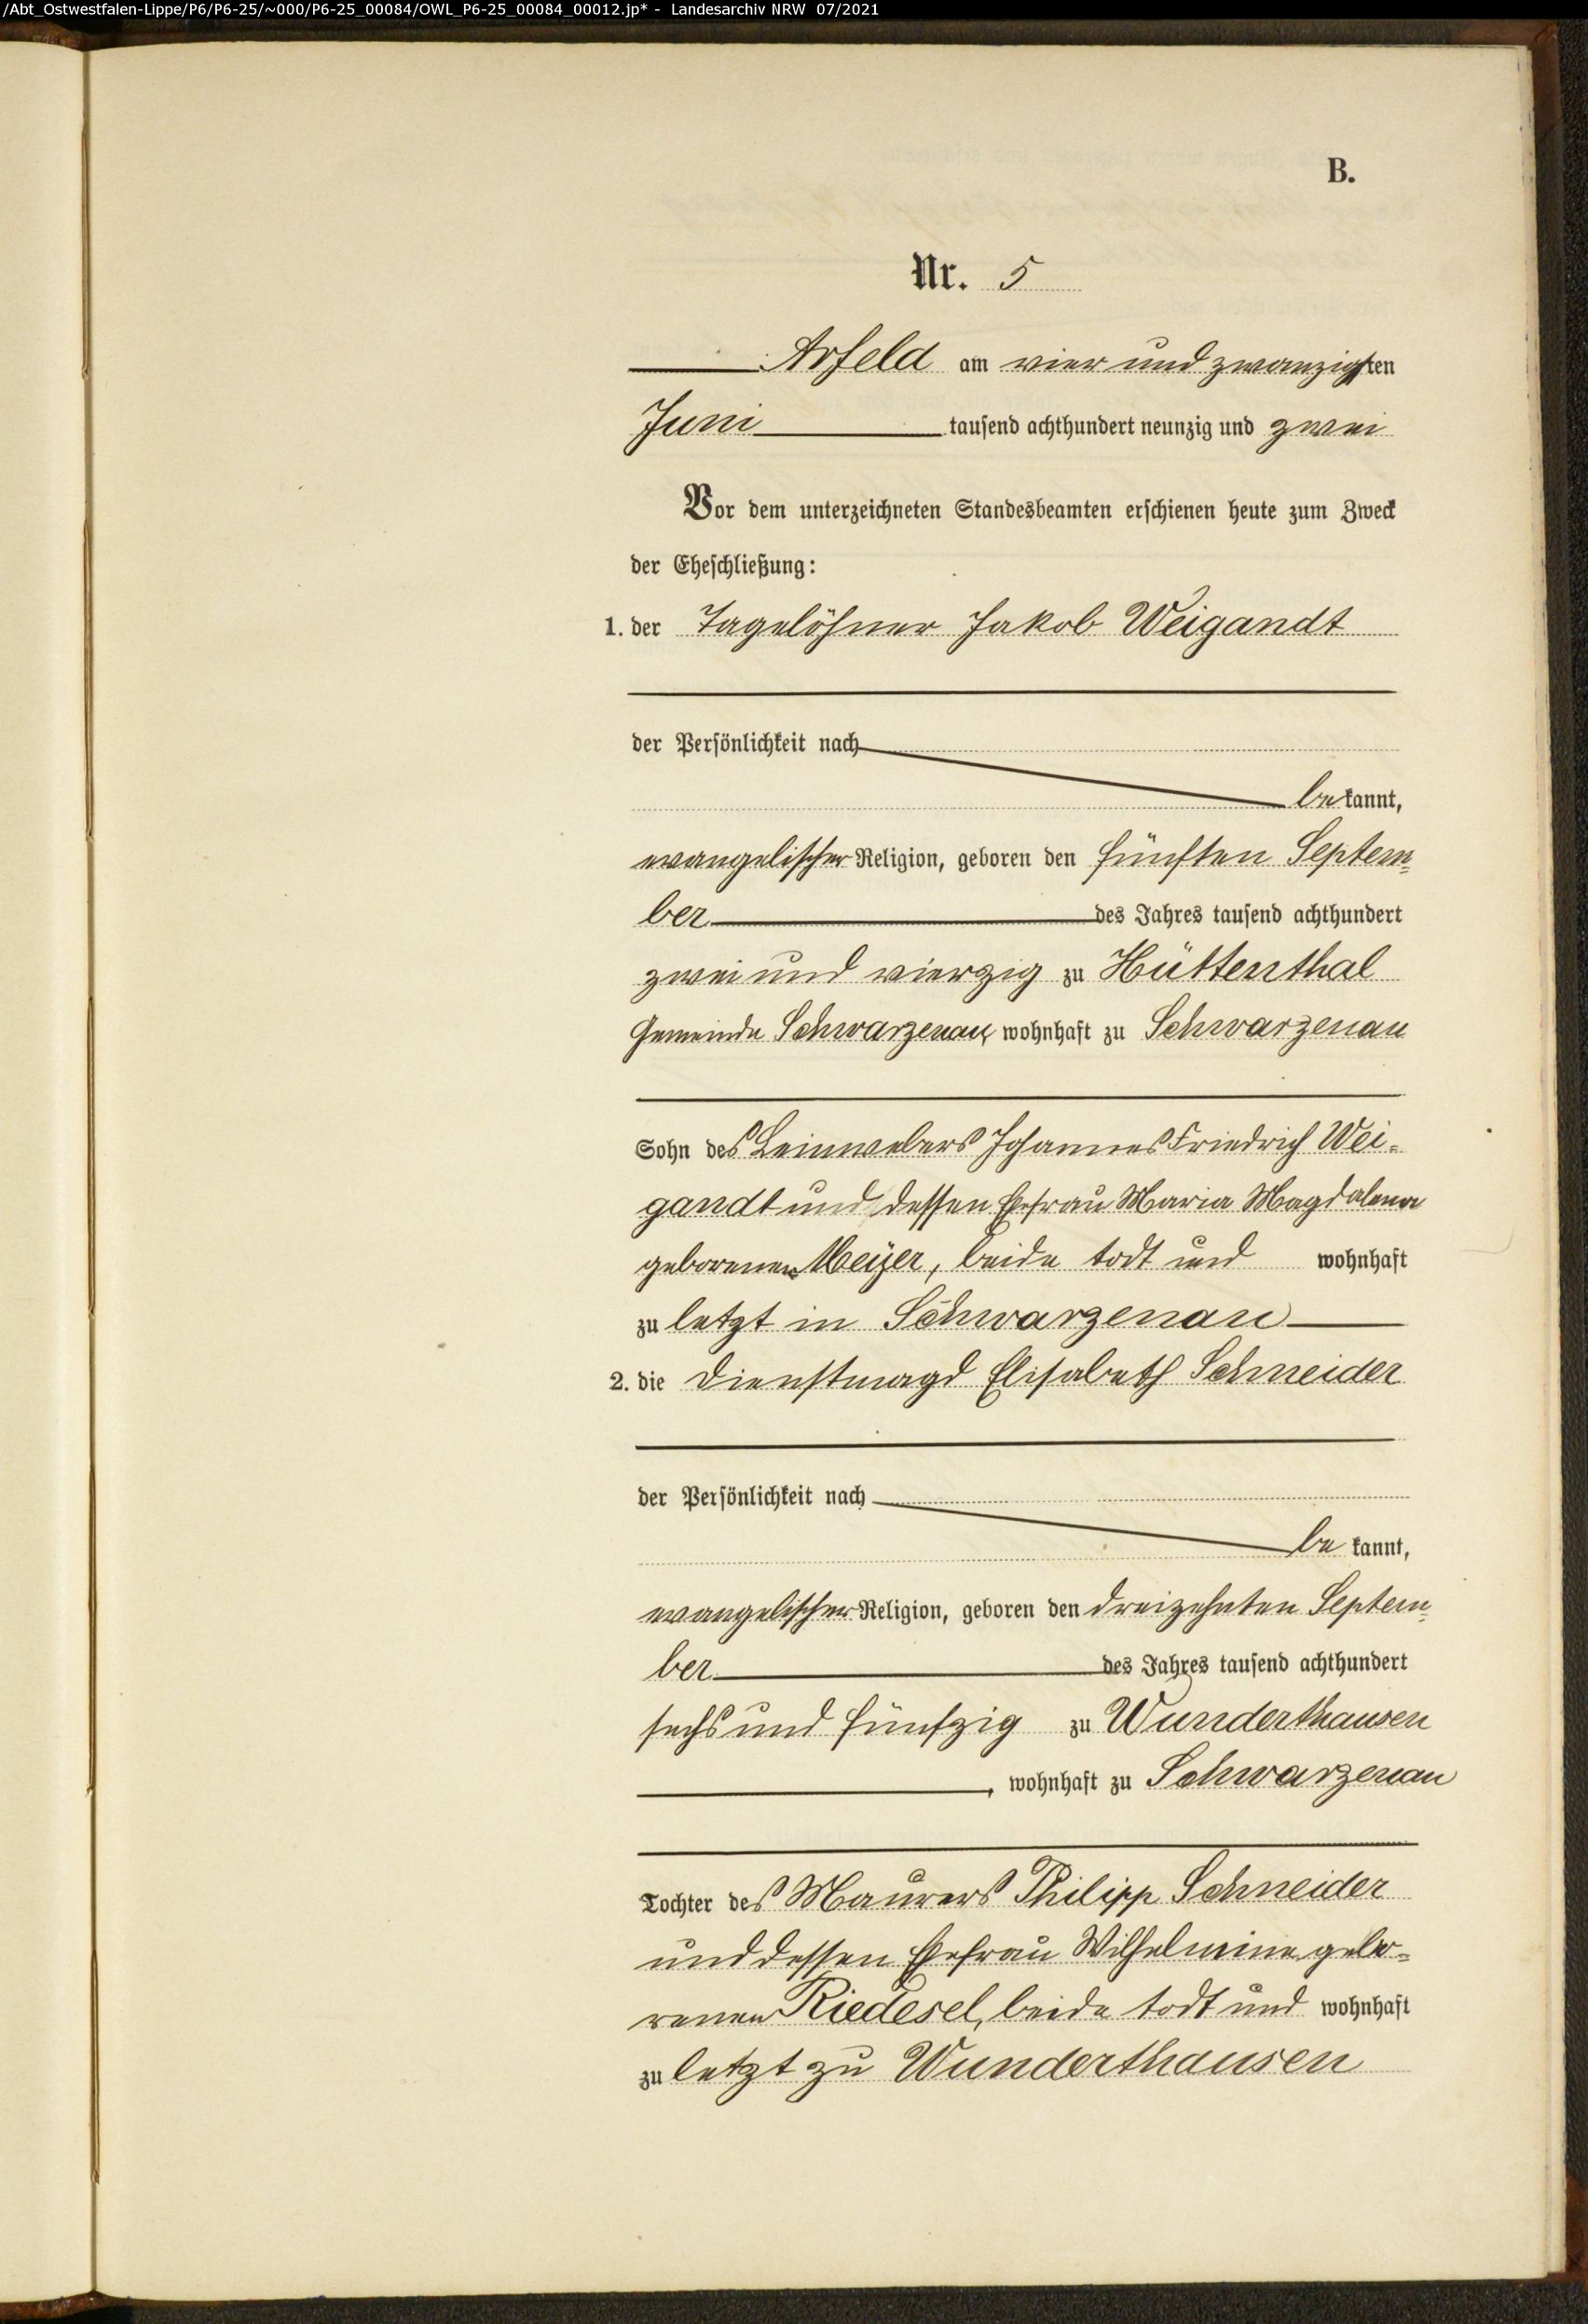 /Abt_Ostwestfalen-Lippe/P6/P6-25/~000/P6-25_00084/OWL_P6-25_00084_00012.jp* - Landesarchiv NRW 07/2021
B.
Nr. 5
Arfeld am vier und zwanzigsten
Juni tausend achthundert neunzig und zwei
Vor dem unterzeichneten Standesbeamten erschienen heute zum Zweck
der Eheschließung:
1. der Tagelöhner Jakob Weigandt
der Persönlichkeit nach
bekannt,
evangelischer Religion, geboren den fünften Septem-
ber des Jahres tausend achthundert
zwei und vierzig zu Hüttenthal
Gemeinde Schwarzenau, wohnhaft zu Schwarzenau
Sohn des Leinwebers Johannes Friedrich Wei-
gandt und dessen Ehefrau Maria Magdalena
geborenen Meÿer, beide todt und wohnhaft
zuletzt in Schwarzenau
2. die Dienstmagd Elisabeth Schneider
der Persönlichkeit nach
be kannt,
evangelischer Religion, geboren den dreizehnten Septem-
ber des Jahres tausend achthundert
sechs und fünfzig zu Wunderthausen
, wohnhaft zu Schwarzenau
Tochter des Maurers Philipp Schneider
und dessen Ehefrau Wilhelmine gebo-
renen Riedesel, beide todt und wohnhaft
zuletzt zu Wunderthausen